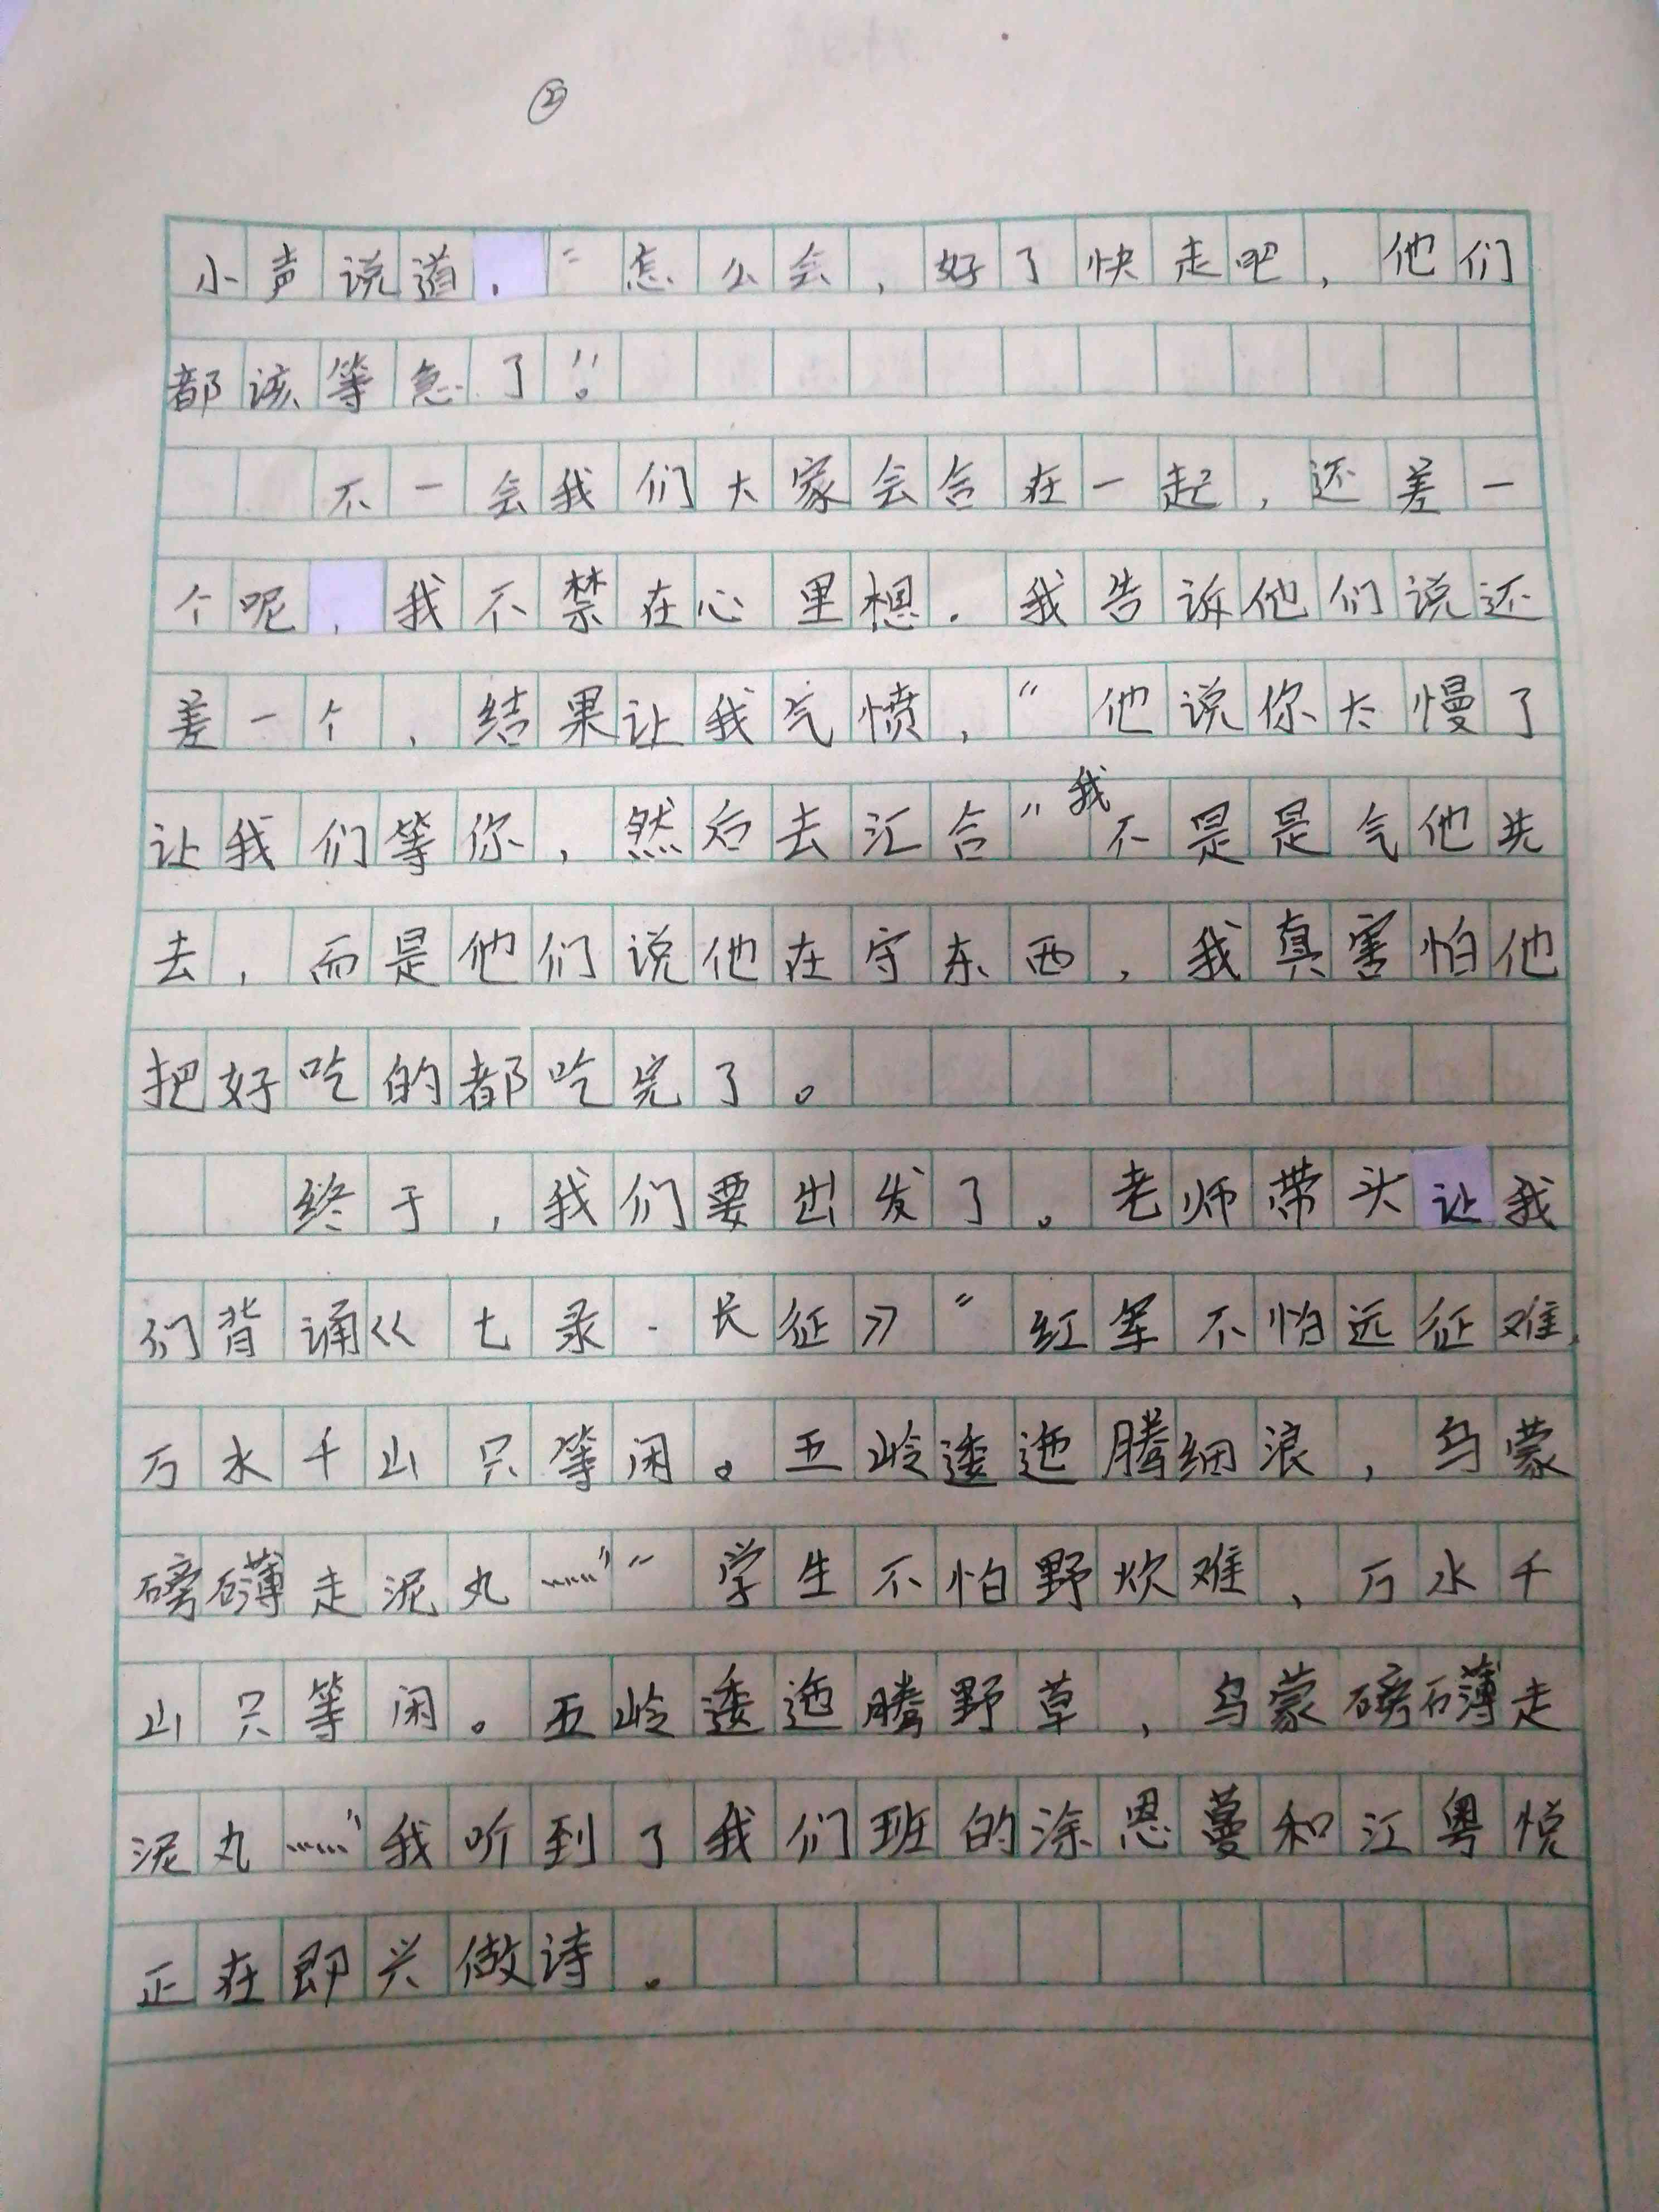 ②
小声说道，“怎么会，好了快走吧，他们
都该等急了！”
不一会我们大家会合在一起，还差一
个呢，我不禁在心里想．我告诉他们说还
差一个，结果让我气愤，“他说你太慢了
让我们等你，然后去汇合”我不是是气他先
去，而是他们说他在守东西，我真害怕他
把好吃的都吃完了。
终于，我们要出发了。老师带头让我
们背诵《七录·长征》“红军不怕远征难，
万水千山只等闲。五岭逶迤腾细浪，乌蒙
磅礴走泥丸……”“学生不怕野炊难，万水千
山只等闲。五岭逶迤腾野草，乌蒙磅礴走
泥丸……”我听到了我们班的涂恩蔓和江粤悦
正在即兴做诗。